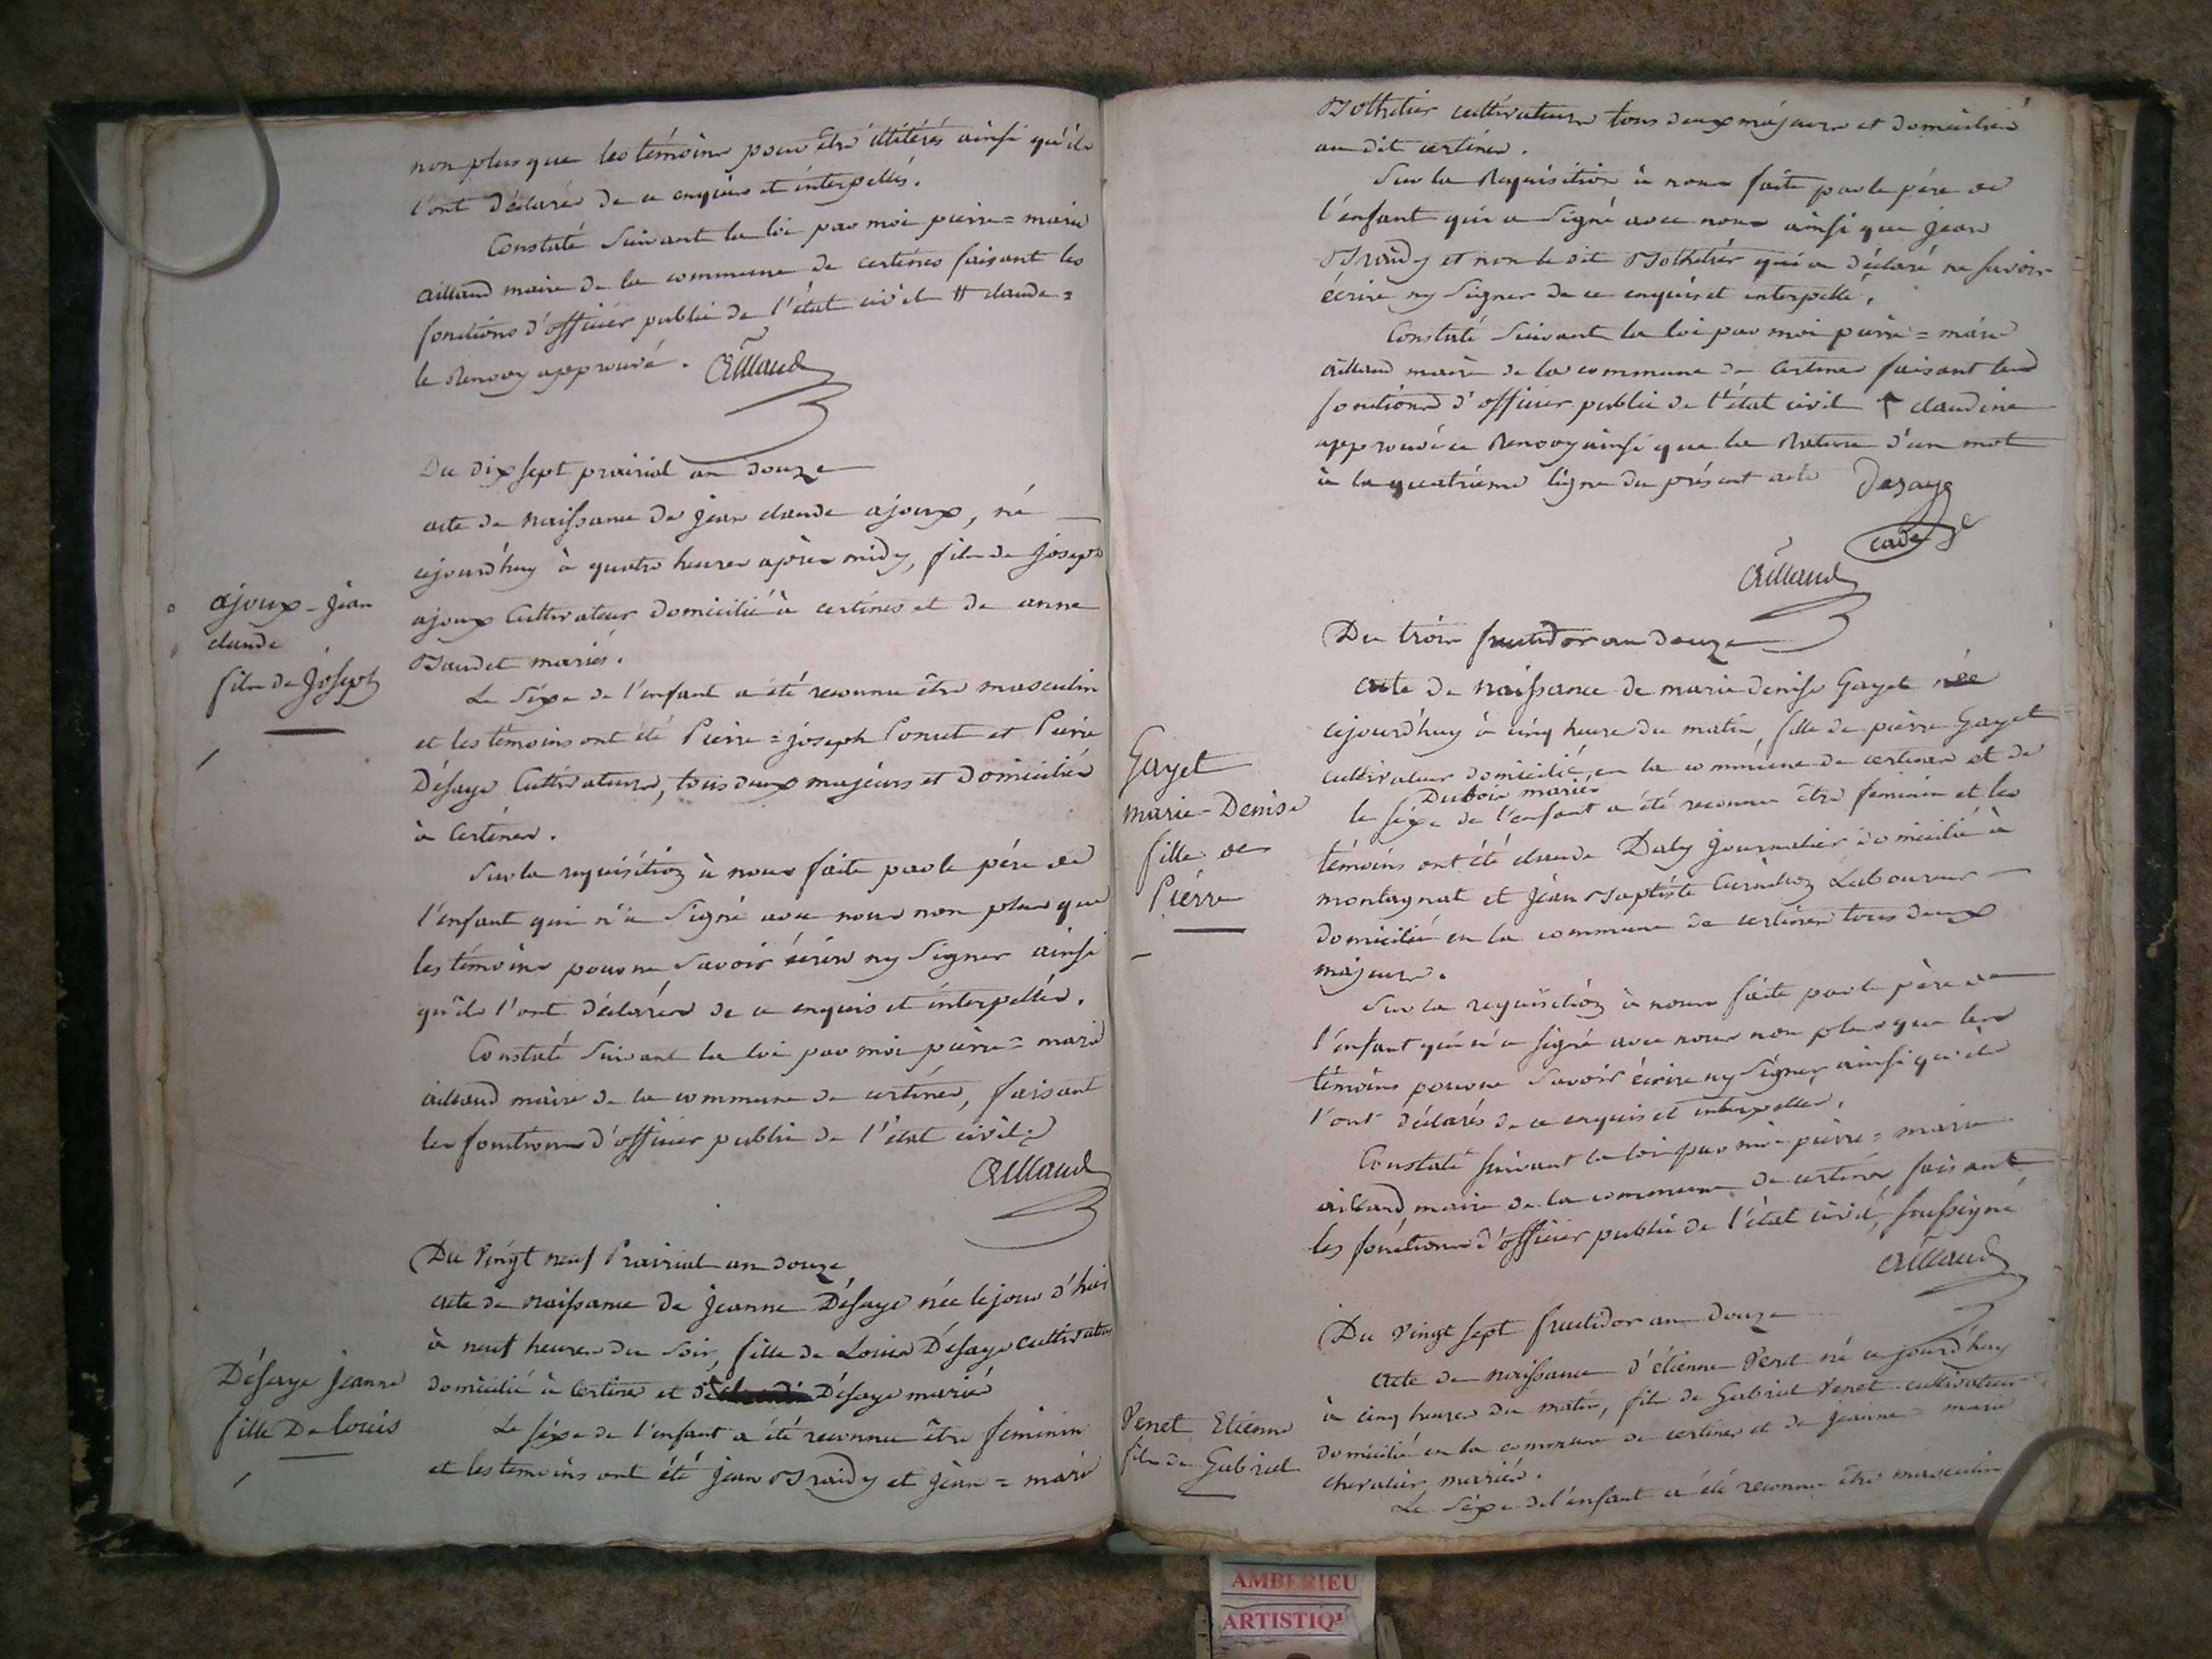 non plus que les témoins pour être illitérés ainsi qu'ils
l'ont déclarés de ce enquis et interpellés.
Constaté suivant la loi par moi pierre = marie
aillaud maire de la commune de certines faisant les
fonctions d'officier public de l'état civil # claude =
le renvoy approuvé. Aillaud
Du dix sept prairial an douze
acte de naissance de jean claude ajoux, né
cejourd'huy à quatre heures après midy, fils de joseph
ajoux cultivateur domicilié à certines et de anne
Baudet mariés.
ajoux - jean
claude
fils de joseph
Le sexe de l'enfant a été reconnu être masculin
et les témoins ont été Pierre = joseph Poncet et Pierre
Désaye cultivateurs, tous deux majeurs et domiciliés
à Certines.
Sur la requisition à nous faite par le père de
l'enfant qui n'a signé avec nous non plus que
les témoins pour ne savoir écrire ny signer ainsi
qu'ils l'ont déclarés de ce enquis et interpellés.
Constaté suivant la loi par moi pierre = marie
aillaud maire de la commune de certines, faisant
les fonctions d'officier public de l'état civil.
Aillaud
Du Vingt neuf Prairial an douze
acte de naissance de jeanne Désaye née le jour d'hui
à neuf heures du soir, fille de Louis Désaye cultivateur
domicilié à Certines et de Désaye mariés
Désaye jeanne
fille De louis
Le sexe de l'enfant a été reconnu être féminin
et les témoins ont été jean Braidy et jean = marie
Bothelier cultivateurs tous deux majeurs et domiciliés
au dit certines.
Sur la Requisition à nous faite par le père de
l'enfant qui a signé avec nous ainsi que jean
Braidy et non le dit Bothelier qui a déclaré ne savoir
écrire ny signer de ce enquis et interpellé.
Constaté suivant la loi par moi pierre = marie
aillaud maire de la commune de Certines faisant les
fonctions d'officier public de l'état civil claudine
approuvé ce Renvoy ainsi que la Rature d'un mot
à la quatrième ligne du présent acte Desaye
Aillaud
Du trois fructidor an douze
acte de naissance de marie denise Gayet née
cejourd'huy à cinq heures du matin, fille de pierre Gayet
cultivateur domicilié en la commune de certines et de
Dubois mariés
Gayet
marie-Denise
fille de
Pierre
le sexe de l'enfant a été reconnu être feminin et les
témoins ont été claude Daby journalier domicilié à
montagnat et jean Baptiste Laboureur
domicilié en la commune de certines tous deux
majeurs.
Sur la requisition à nous faite par le père de
l'enfant qui n'a signé avec nous non plus que les
témoins pour ne savoir écrire ny signer ainsi qu'ils
l'ont déclarés de ce enquis et interpellés.
Constaté suivant la loi par moi pierre = marie
aillaud, maire de la commune de certines faisant
les fonctions d'officier public de l'état civil, soussigné
Aillaud
Du Vingt sept fructidor an douze
acte de naissance d'étienne Venet né cejourd'huy
à cinq heures du matin, fils de Gabriel Venet cultivateur
domicilié en la commune de certines et de jeanne = marie
chevalier mariés.
Venet Etienne
fils de Gabriel
Le sexe de l'enfant a été reconnu être masculin
AMBERIEU
ARTISTIQ